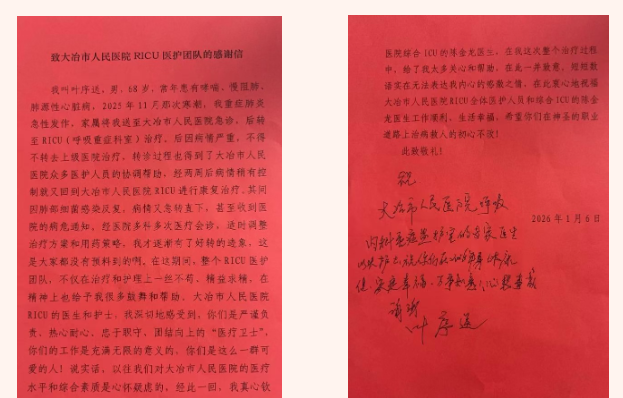 致大冶市人民医院 RICU 医护团队的感谢信
我叫叶序送，男，68 岁，常年患有哮喘、慢阻肺、
肺源性心脏病，2025 年 11 月那次寒潮，我重症肺炎
急性发作，家属将我送至大冶市人民医院急诊，后转
至 RICU（呼吸重症科室）治疗，后因病情严重，不得
不转去上级医院治疗，转诊过程也得到了大冶市人民
医院众多医护人员的协调帮助，经两周后病情稍有控
制就又回到大冶市人民医院 RICU 进行康复治疗，其间
因肺部细菌感染反复，病情又急转直下，甚至收到医
院的病危通知，经医院多科多次医疗会诊，适时调整
治疗方案和用药策略，我才逐渐有了好转的迹象，这
是大家都没有预料到的啊。在这期间，整个 RICU 医护
团队，不仅在治疗和护理上一丝不苟、精益求精，在
精神上也给予我很多鼓舞和帮助，大冶市人民医院
RICU 的医生和护士，我深切地感受到，你们是严谨负
责、热心耐心、忠于职守，团结向上的“医疗卫士”，
你们的工作是充满无限的意义的，你们是这么一群可
爱的人！说实话，以往我们对大冶市人民医院的医疗
水平和综合素质是心怀疑虑的，经此一回，我真心钦
医院综合 ICU 的陈金龙医生，在我这次整个治疗过程
中，给了我太多关心和帮助，在此一并致意，短短数
语实在无法表达我内心的感激之情，在此衷心地祝福
大冶市人民医院 RICU 全体医护人员和综合 ICU 的陈金
龙医生工作顺利，生活幸福，希望你们在神圣的职业
道路上治病救人的初心不改！
此致敬礼！
祝
大冶市人民医院呼吸
2026 年 1 月 6 日
内科重症监护室的各家医生
谢谢
叶序送